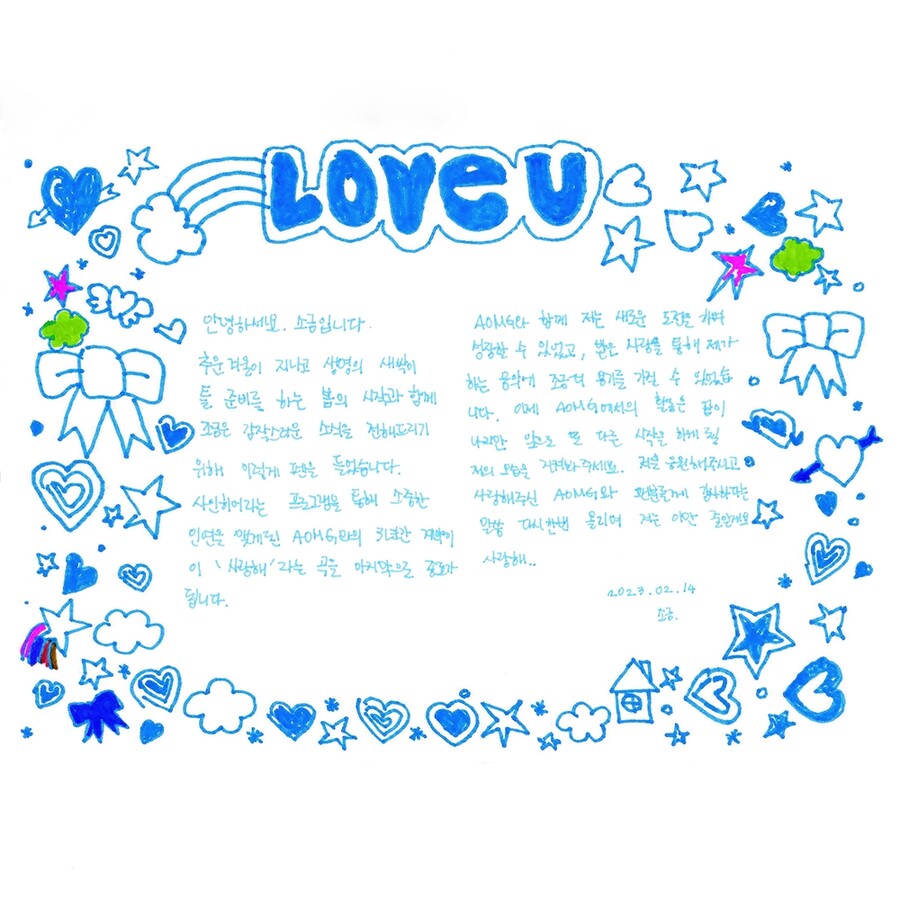 LOVE U
안녕하세요. 소금입니다.
추운 겨울이 지나고 생명의 새싹이
틀 준비를 하는 봄의 시작과 함께
조금은 갑작스러운 소식을 전해드리기
위해 이렇게 펜을 들었습니다.
사인히어라는 프로그램을 통해 소중한
인연을 맺게된 AOMG와의 3년간 계약이
이 '사랑해'라는 곡을 마지막으로 종료가
됩니다.
AOMG와 함께 저는 새로운 도전을 하며
성장할 수 있었고, 받은 사랑을 통해 제가
하는 음악에 조금 더 용기를 가질 수 있었습
니다. 이제 AOMG에서의 활동은 끝이
나지만 앞으로 또 다른 시작을 하게 될
저의 모습을 지켜봐 주세요. 저를 응원해주시고
사랑해주신 AOMG와 팬분들에게 감사하다는
말씀 다시한번 올리며 저는 이만 줄일게요
사랑해..
2023.02.14
소금.